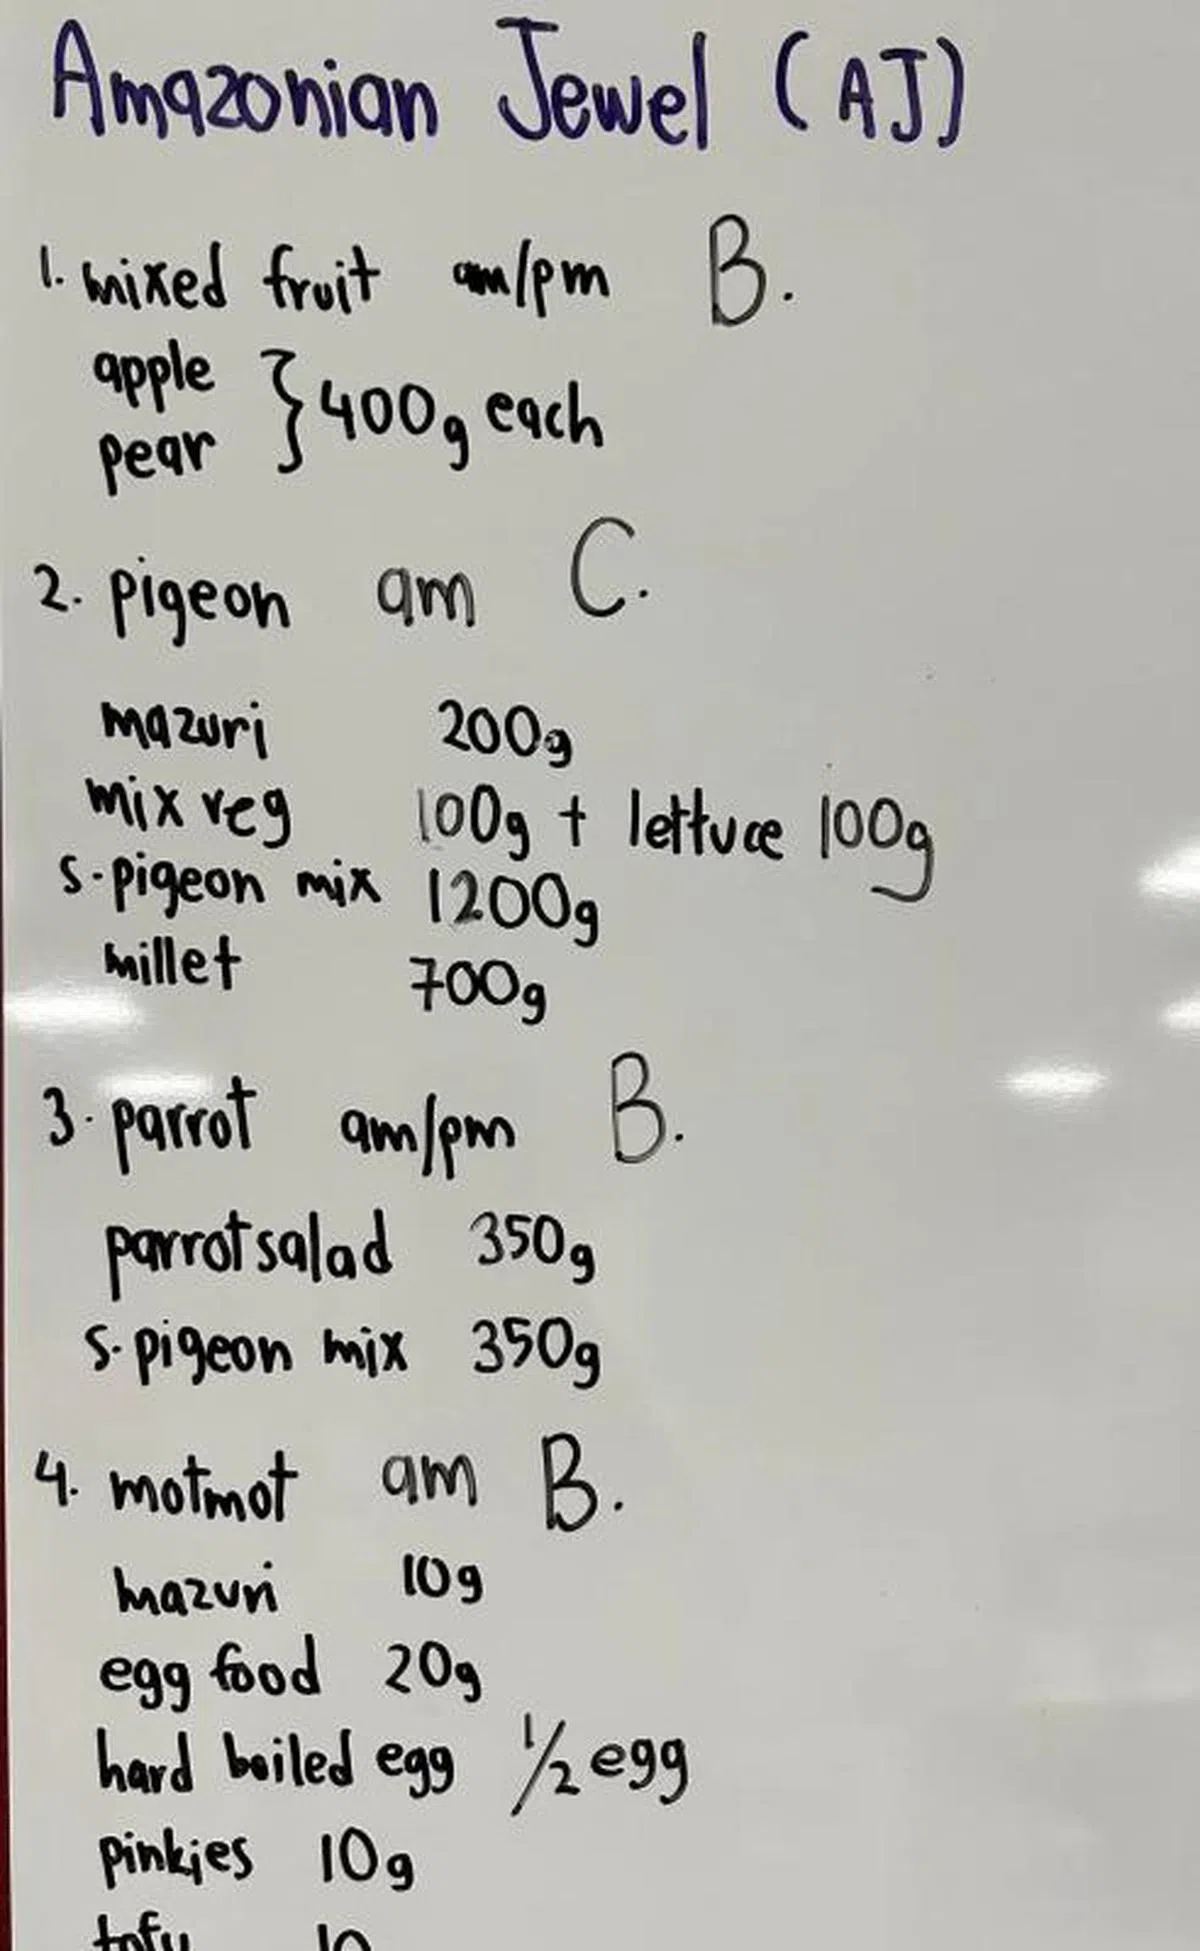 Amazonian Jewel (AJ)
1. mixed fruit am/pm B.
apple
pear } 400g each
2. pigeon am C.
mazuri 200g
mix veg 100g + lettuce 100g
s-pigeon mix 1200g
millet 700g
3. parrot am/pm B.
parrot salad 350g
s-pigeon mix 350g
4. motmot am B.
mazuri 10g
egg food 20g
hard boiled egg 1/2 egg
pinkies 10g
tofu 10